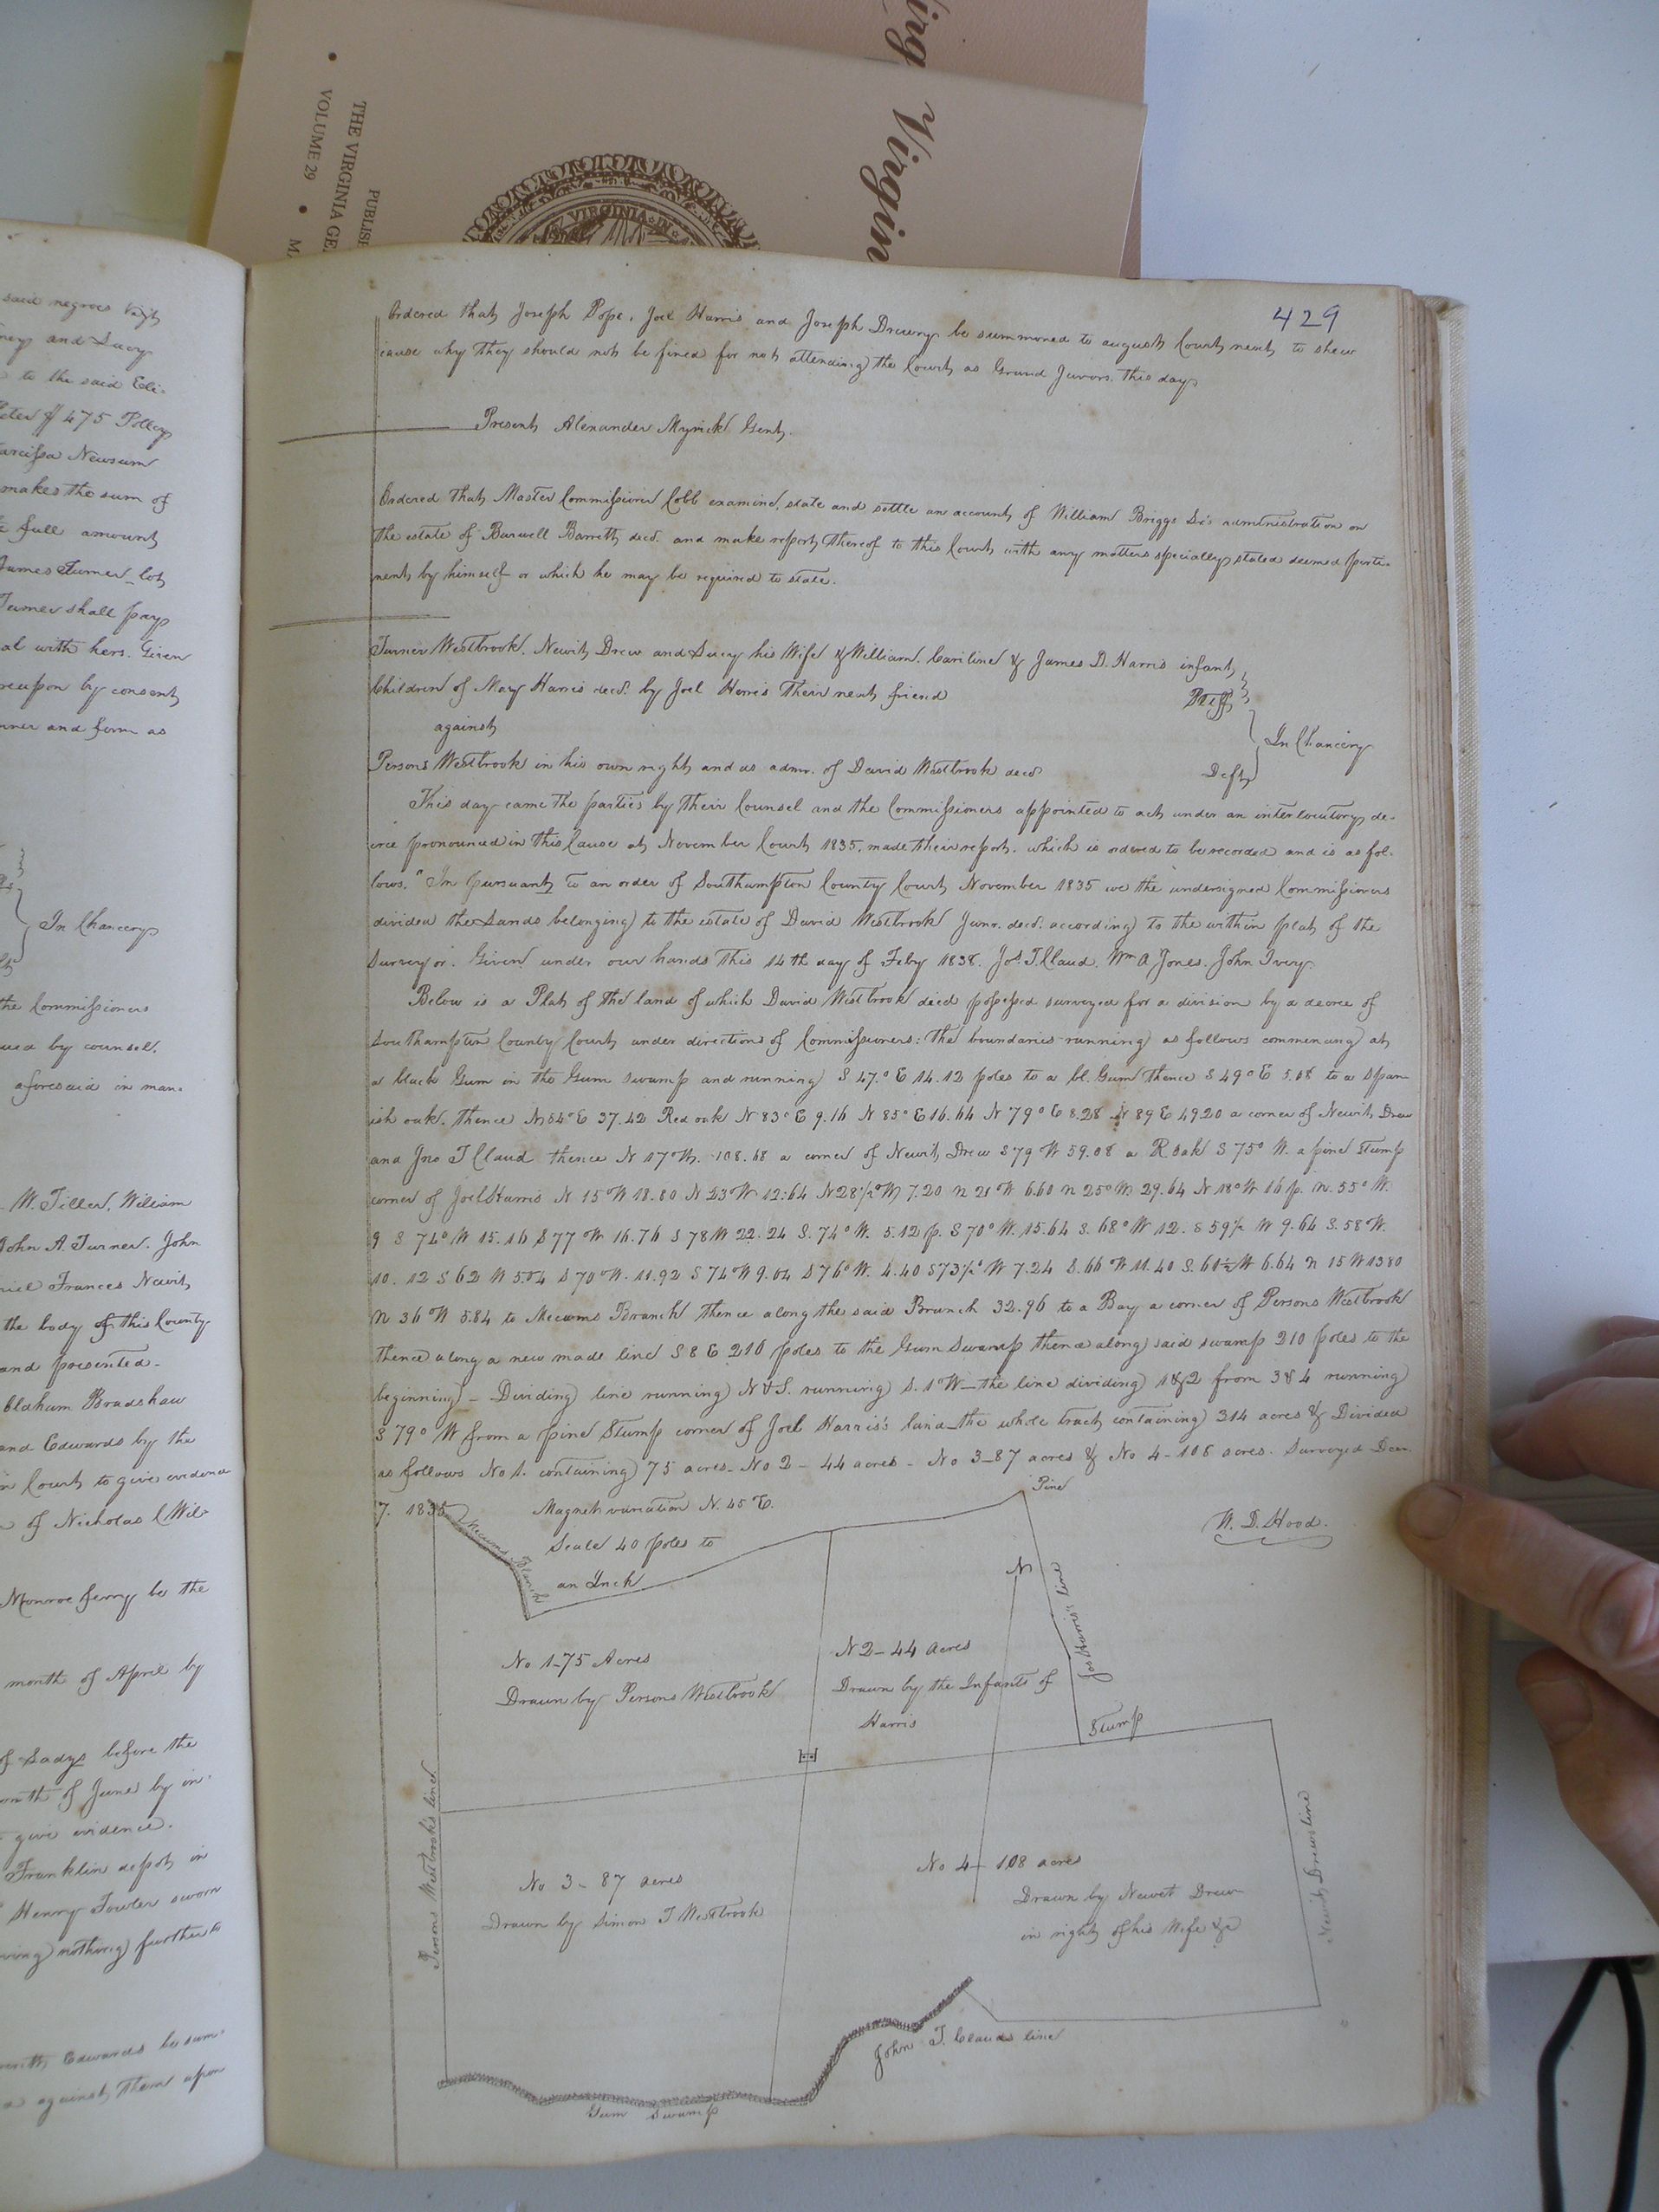 Virgin
THE VIRGINIA GE
VOLUME 29 •
PUBLIS
VIRGINIA
429
Ordered that Joseph Pope, Joel Harris and Joseph Drewry be summoned to august Court next to shew
cause why they should not be fined for not attending the Court as Grand Jurors this day
Present Alexander Myrick Gent.
Ordered that Master Commissioner Cobb examine, state and settle an account of William Briggs administration on
the estate of Burwell Barrett decd. and make report thereof to this Court with any matters specially stated deemed perti-
nent by himself or which he may be required to state.
Turner Westbrook, Newit Drew and Lucy his Wife & William, Cariline & James D. Harris infant
Children of Mary Harris decd. by Joel Harris their next friend
Pltffs
against
In Chancery
Persons Westbrook in his own right and as admr. of David Westbrook decd
Defts
This day came the parties by their Counsel and the Commissioners appointed to act under an interlocutory de-
cree pronounced in this Cause at November Court 1835, made their report, which is ordered to be recorded and is as fol-
lows, "In pursuant to an order of Southampton County Court November 1835 we the undersigned Commissioners
divided the Lands belonging to the estate of David Westbrook Junr. decd. according to the within plat of the
Surveyor. Given under our hands this 14th day of Feby 1838. Jos. T. Claud, Wm A Jones, John Ivery
Below is a Plat of the land of which David Westbrook decd possessed surveyed for a division by a decree of
Southampton County Court under directions of Commissioners: the boundaries running as follows commencing at
a black Gum in the Gum swamp and running S 47.° E 14.12 poles to a bl. Gum thence S 49° E 5.08 to a Span-
ish oak. thence N 84° E 37.42 Red oak N 83° E 9.16 N 85° E 16.64 N 79° E 8.28 N 89 E 49.20 a corner of Newit Drew
and Jno T Claud thence N 17° W. 108.68 a corner of Newit Drew S 79 W 59.08 a R. oak S 75° W. a pine Stump
corner of Joel Harris N 15° W 18.80 N 23° W 12.64 N 28½° W 7.20 n 21° W 6.60 n 25° W 29.64 N 18° W 16 p. n. 55° W.
9 S 74° W 15.16 S 77° W 16.76 S 78 W 22.24 S. 74° W. 5.12 p. S 70° W. 15.64 S. 68° W 12. S 59½ W 9.64 S. 58° W.
10.12 S 62 W 5.04 S 70° W. 11.92 S 74° W 9.04 S 76° W. 4.40 S 73½° W 7.24 S. 66° W 11.40 S. 61½ W 6.64 n 15 W 13.80
n 36° W 5.84 to Mecums Branch thence along the said Branch 32.96 to a Bay a corner of Persons Westbrook
thence along a new made line S 8 E 216 poles to the Gum Swamp thence along said swamp 210 poles to the
beginning - Dividing line running N & S. running S. 1° W - the line dividing 1 & 2 from 3 & 4 running
S 79° W from a pine Stump corner of Joel Harris's land - the whole tract containing 314 acres & Divided
as follows No 1. containing 75 acres - No 2 - 44 acres - No 3 - 87 acres & No 4 - 108 acres. Surveyed Decr.
7. 1835
W. D. Hood.
Magnet variation N. 45 E.
Scale 40 poles to
an Inch
Mecums Branch
Pine
N
Jos Harris's line
No 1-75 Acres
Drawn by Persons Westbrook
N 2-44 acres
Drawn by the Infants of
Harris
Stump
Persons Westbrooks line
No 3 - 87 acres
Drawn by Simon T Westbrook
No 4 - 108 acres
Drawn by Newet Drew
in right of his Wife &c
Newit Drews line
John T. Clauds line
Gum Swamp
said negroes
and Lucy
to the said Eli-
475
Newsum
makes the sum of
full amount
James Turner lot
Turner shall pay
al with hers. Given
by consent
nner and form as
In Chancery
the Commissioners
by counsel,
aforesaid in man-
W. Tiller, William
John A. Turner. John
Frances Newit
the body of this County
and presented -
Oldham Bradshaw
and Edwards by the
in Court to give evidence
of Nicholas C Wil-
Monroe ferry be the
month of April by
before the
month of June by in-
give evidence.
Franklin depot in
Henry Fowler sworn
nothing further
Edwards be sum-
against them upon